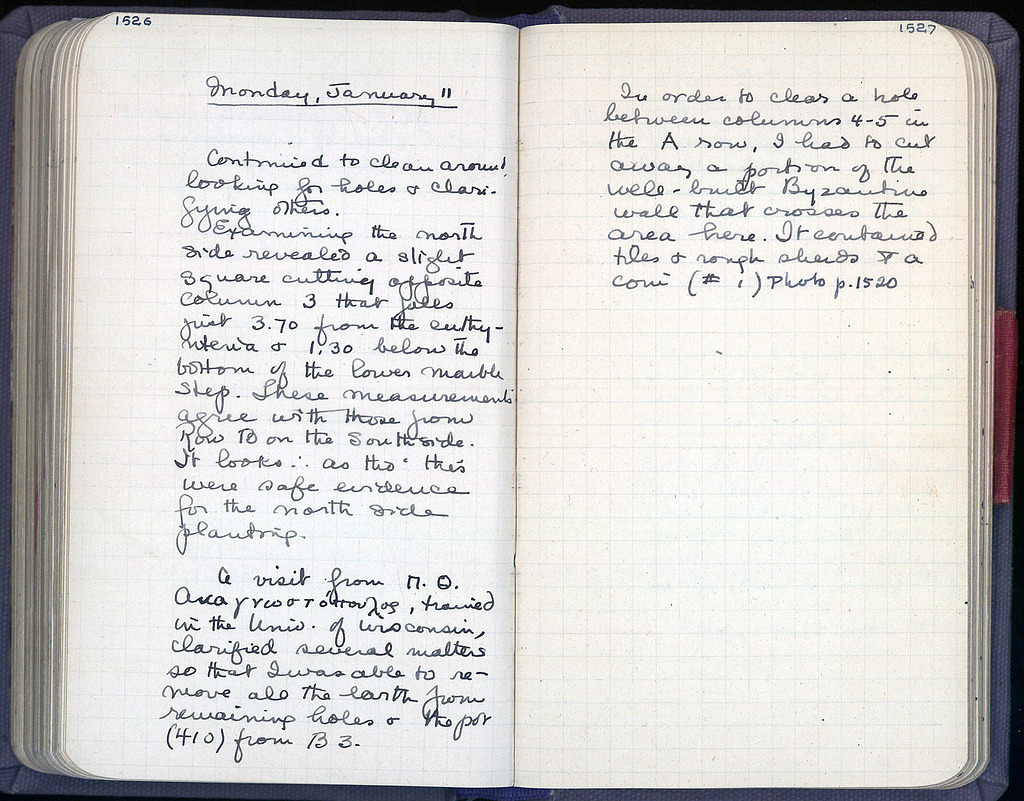 1526
Monday, January 11
Continued to clean around,
looking for holes & clari-
fying others.
Examining the north
side revealed a slight
square cutting opposite
column 3 that falls
just 3.70 from the euthy-
nteria & 1.30 below the
bottom of the lower marble
step. These measurements
agree with those from
Row B on the South side.
It looks ∴ as tho' this
were safe evidence
for the north side
planting.
A visit from Π. Θ.
Αναγνωστόπουλος, trained
in the Univ. of Wisconsin,
clarified several matters
so that I was able to re-
move all the earth from
remaining holes & the pot
(410) from B 3.
1527
In order to clear a hole
between columns 4-5 in
the A row, I had to cut
away a portion of the
well-built Byzantine
wall that crosses the
area here. It contained
tiles & rough sherds & a
coin (# 1) Photo p.1520